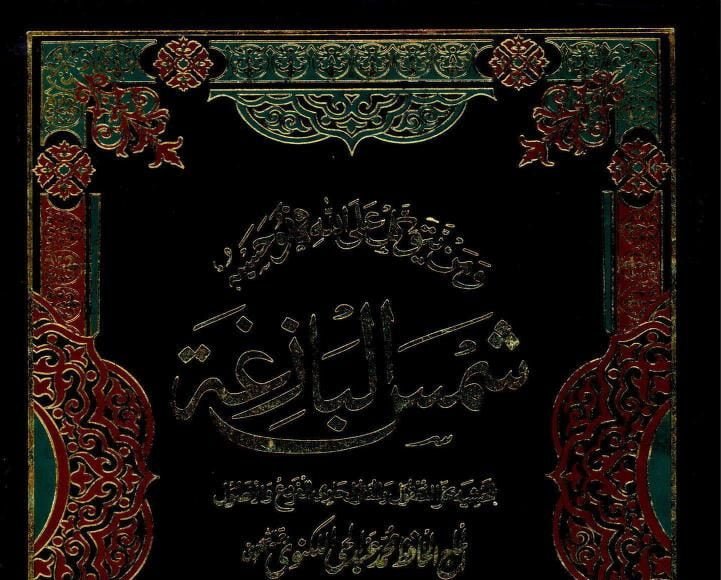 وَمَنْ يَتَوَكَّلْ عَلَى اللَّهِ فَهُوَ حَسْبُهُ
شَمْسُ الْبَازِغَةِ
بحاشية المعقول والمنقول حاوي الفروع والأصول
الحافظ محمد عبد الحي اللكنوي